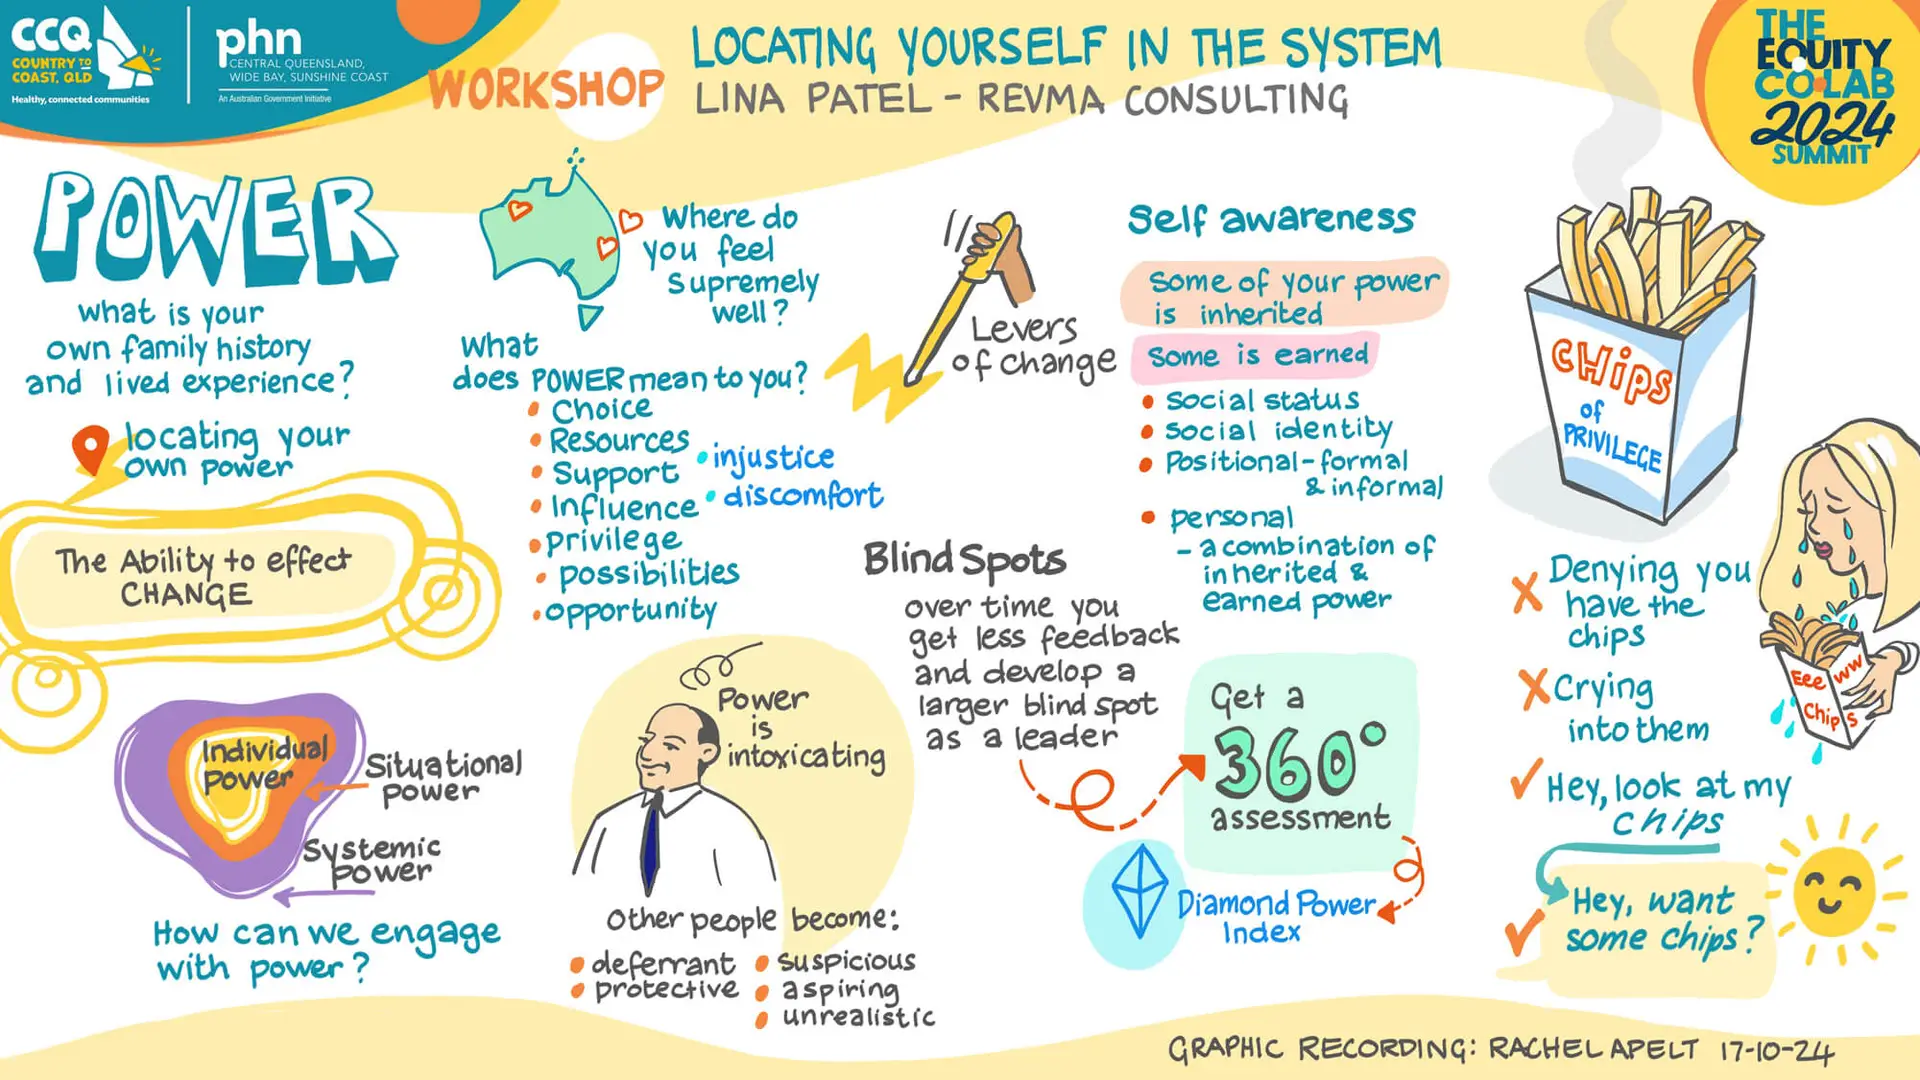 CCQ
COUNTRY TO
COAST, QLD
Healthy, connected communities
phn
CENTRAL QUEENSLAND,
WIDE BAY, SUNSHINE COAST
An Australian Government Initiative
WORKSHOP
LOCATING YOURSELF IN THE SYSTEM
LINA PATEL - REVMA CONSULTING
THE
EQUITY
COLAB
2024
SUMMIT
POWER
what is your
own family history
and lived experience?
locating your
own power
The Ability to effect
CHANGE
Individual
power
Situational
power
Systemic
power
How can we engage
with power?
Where do
you feel
supremely
well?
What
does POWER mean to you?
• Choice
• Resources
• Support
• Influence
• privilege
• possibilities
• opportunity
• injustice
• discomfort
Power
is
intoxicating
Other people become:
• deferrant
• protective
• suspicious
• aspiring
• unrealistic
Levers
of change
Blind Spots
over time you
get less feedback
and develop a
larger blind spot
as a leader
Self awareness
Some of your power
is inherited
Some is earned
• Social status
• Social identity
• Positional - formal
& informal
• personal
- a combination of
inherited &
earned power
Get a
360°
assessment
Diamond Power
Index
CHips
of
PRIVILEGE
X Denying you
have the
chips
X Crying
into them
✓ Hey, look at my
chips
✓ Hey, want
some chips?
Eee ww
Chips
GRAPHIC RECORDING: RACHEL APELT 17-10-24